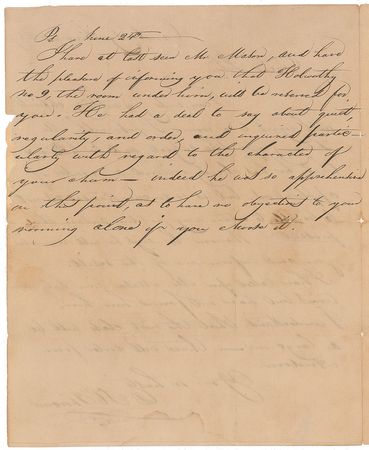 June 24th
I have at last seen Mr. Mason, and have
the pleasure of informing you that Holworthy
no 9, the room under him, will be reserved for
you. He had a deal to say about quiet,
regularity, and order, and inquired partic-
ularly with regard to the character of
your chum — indeed he was so apprehensive
on that point, as to have no objections to your
rooming alone if you choose it.